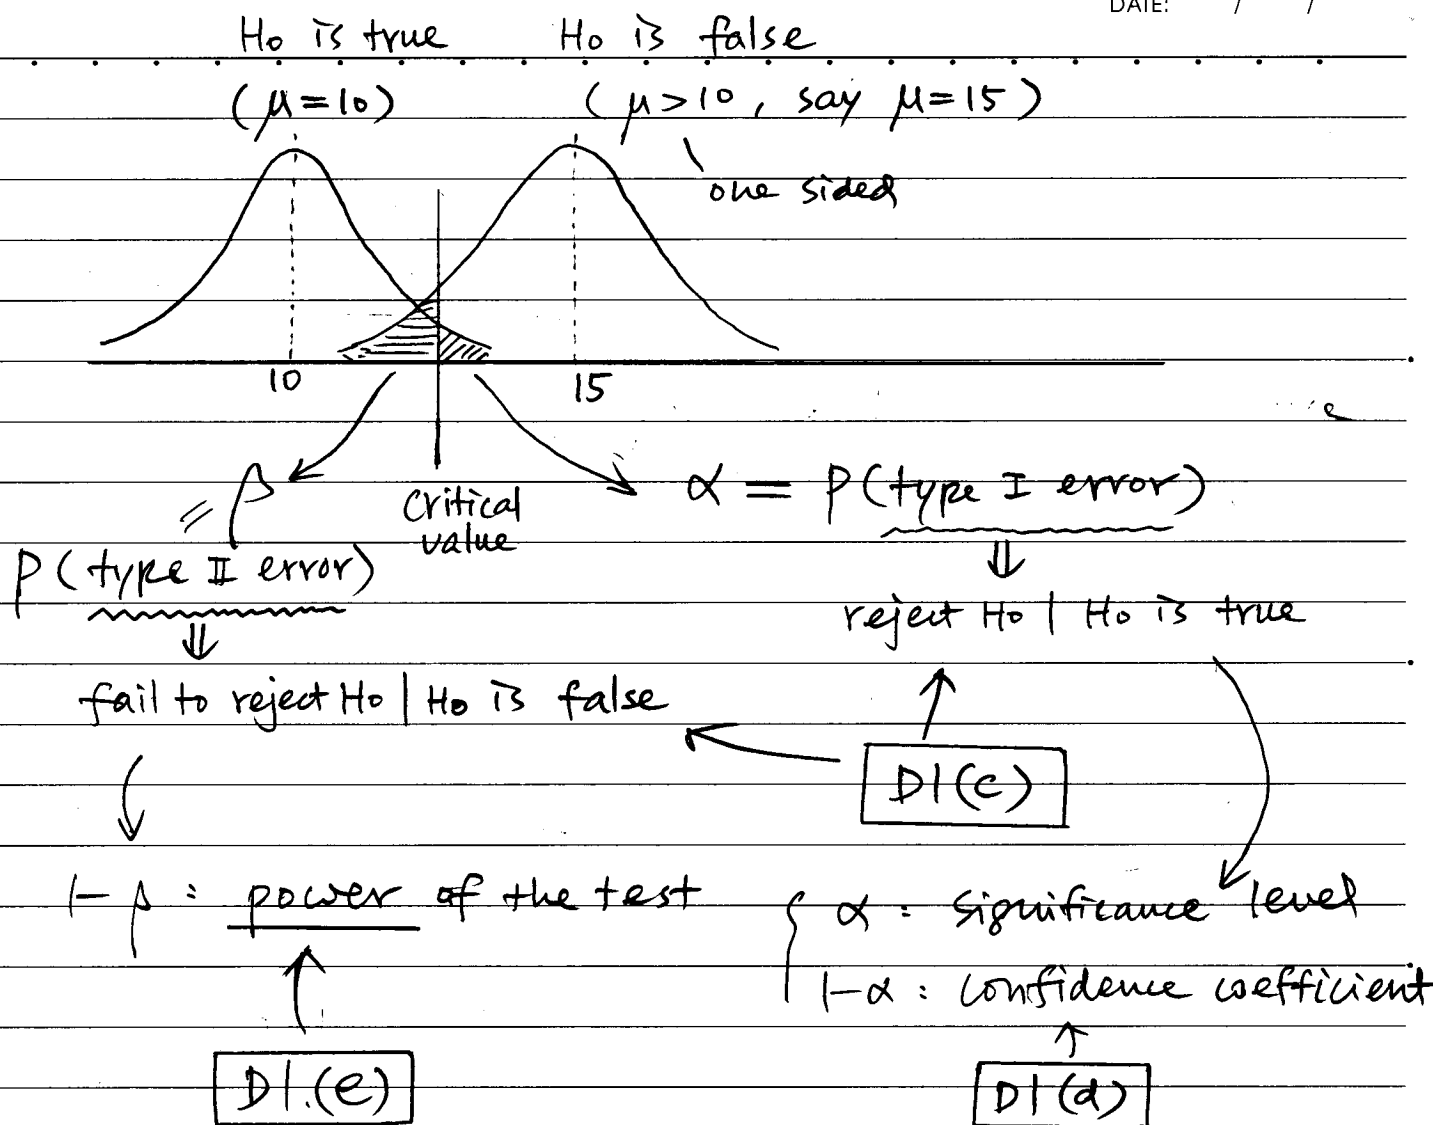 DATE: / /
Ho is true Ho is false
(μ=10) (μ>10, say μ=15)
one sided
10 15
β α = P(type I error)
Critical
value
=
P(type II error)
⇓
⇓
reject Ho | Ho is true
fail to reject Ho | Ho is false
D1(c)
1-β : power of the test
α : significance level
1-α : confidence coefficient
D1.(e)
D1(d)